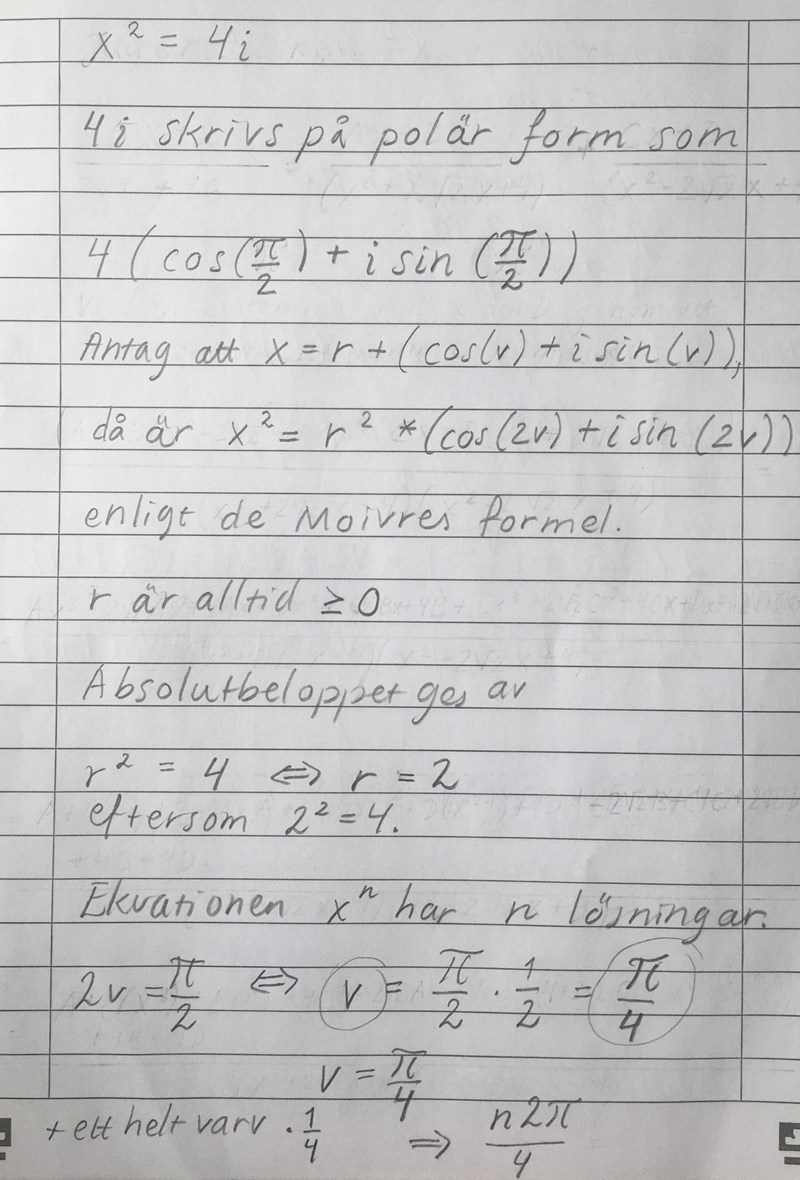 x² = 4i
4i skrivs på polär form som
4(cos(π/2) + i sin(π/2))
Antag att x = r + (cos(v) + i sin(v)),
då är x² = r² * (cos(2v) + i sin(2v))
enligt de Moivres formel.
r är alltid ≥ 0
Absolutbeloppet ges av
r² = 4 ⇔ r = 2
eftersom 2² = 4.
Ekvationen xⁿ har n lösningar.
2v = π/2 ⇔ v = π/2 · 1/2 = π/4
v = π/4
+ ett helt varv · 1/4 ⇒ n2π/4